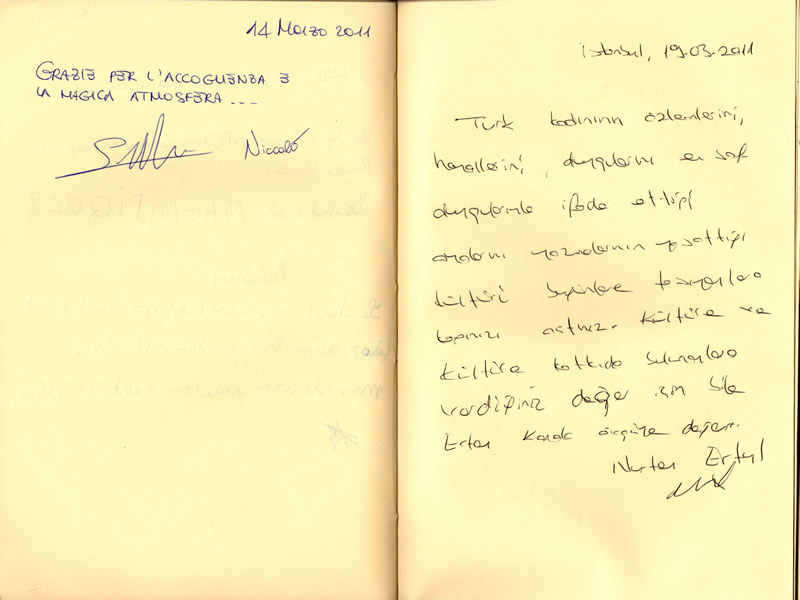 14 Marzo 2011
GRAZIE PER L'ACCOGLIENZA E
LA MAGICA ATMOSFERA ...
Niccolò
istanbul, 19.03.2011
Türk kadınının özlemlerini,
hayallerini, duygularını en saf
duygularımla ifade ettiği
yazmalarının yaşattığı
kültürü bugünlere taşıyanlara
kapınızı açtınız. Kültüre ve
kültüre katkıda bulunanlara
verdiğiniz değer için bile
Erten Konak övgüye değer.
Nurten Ertul